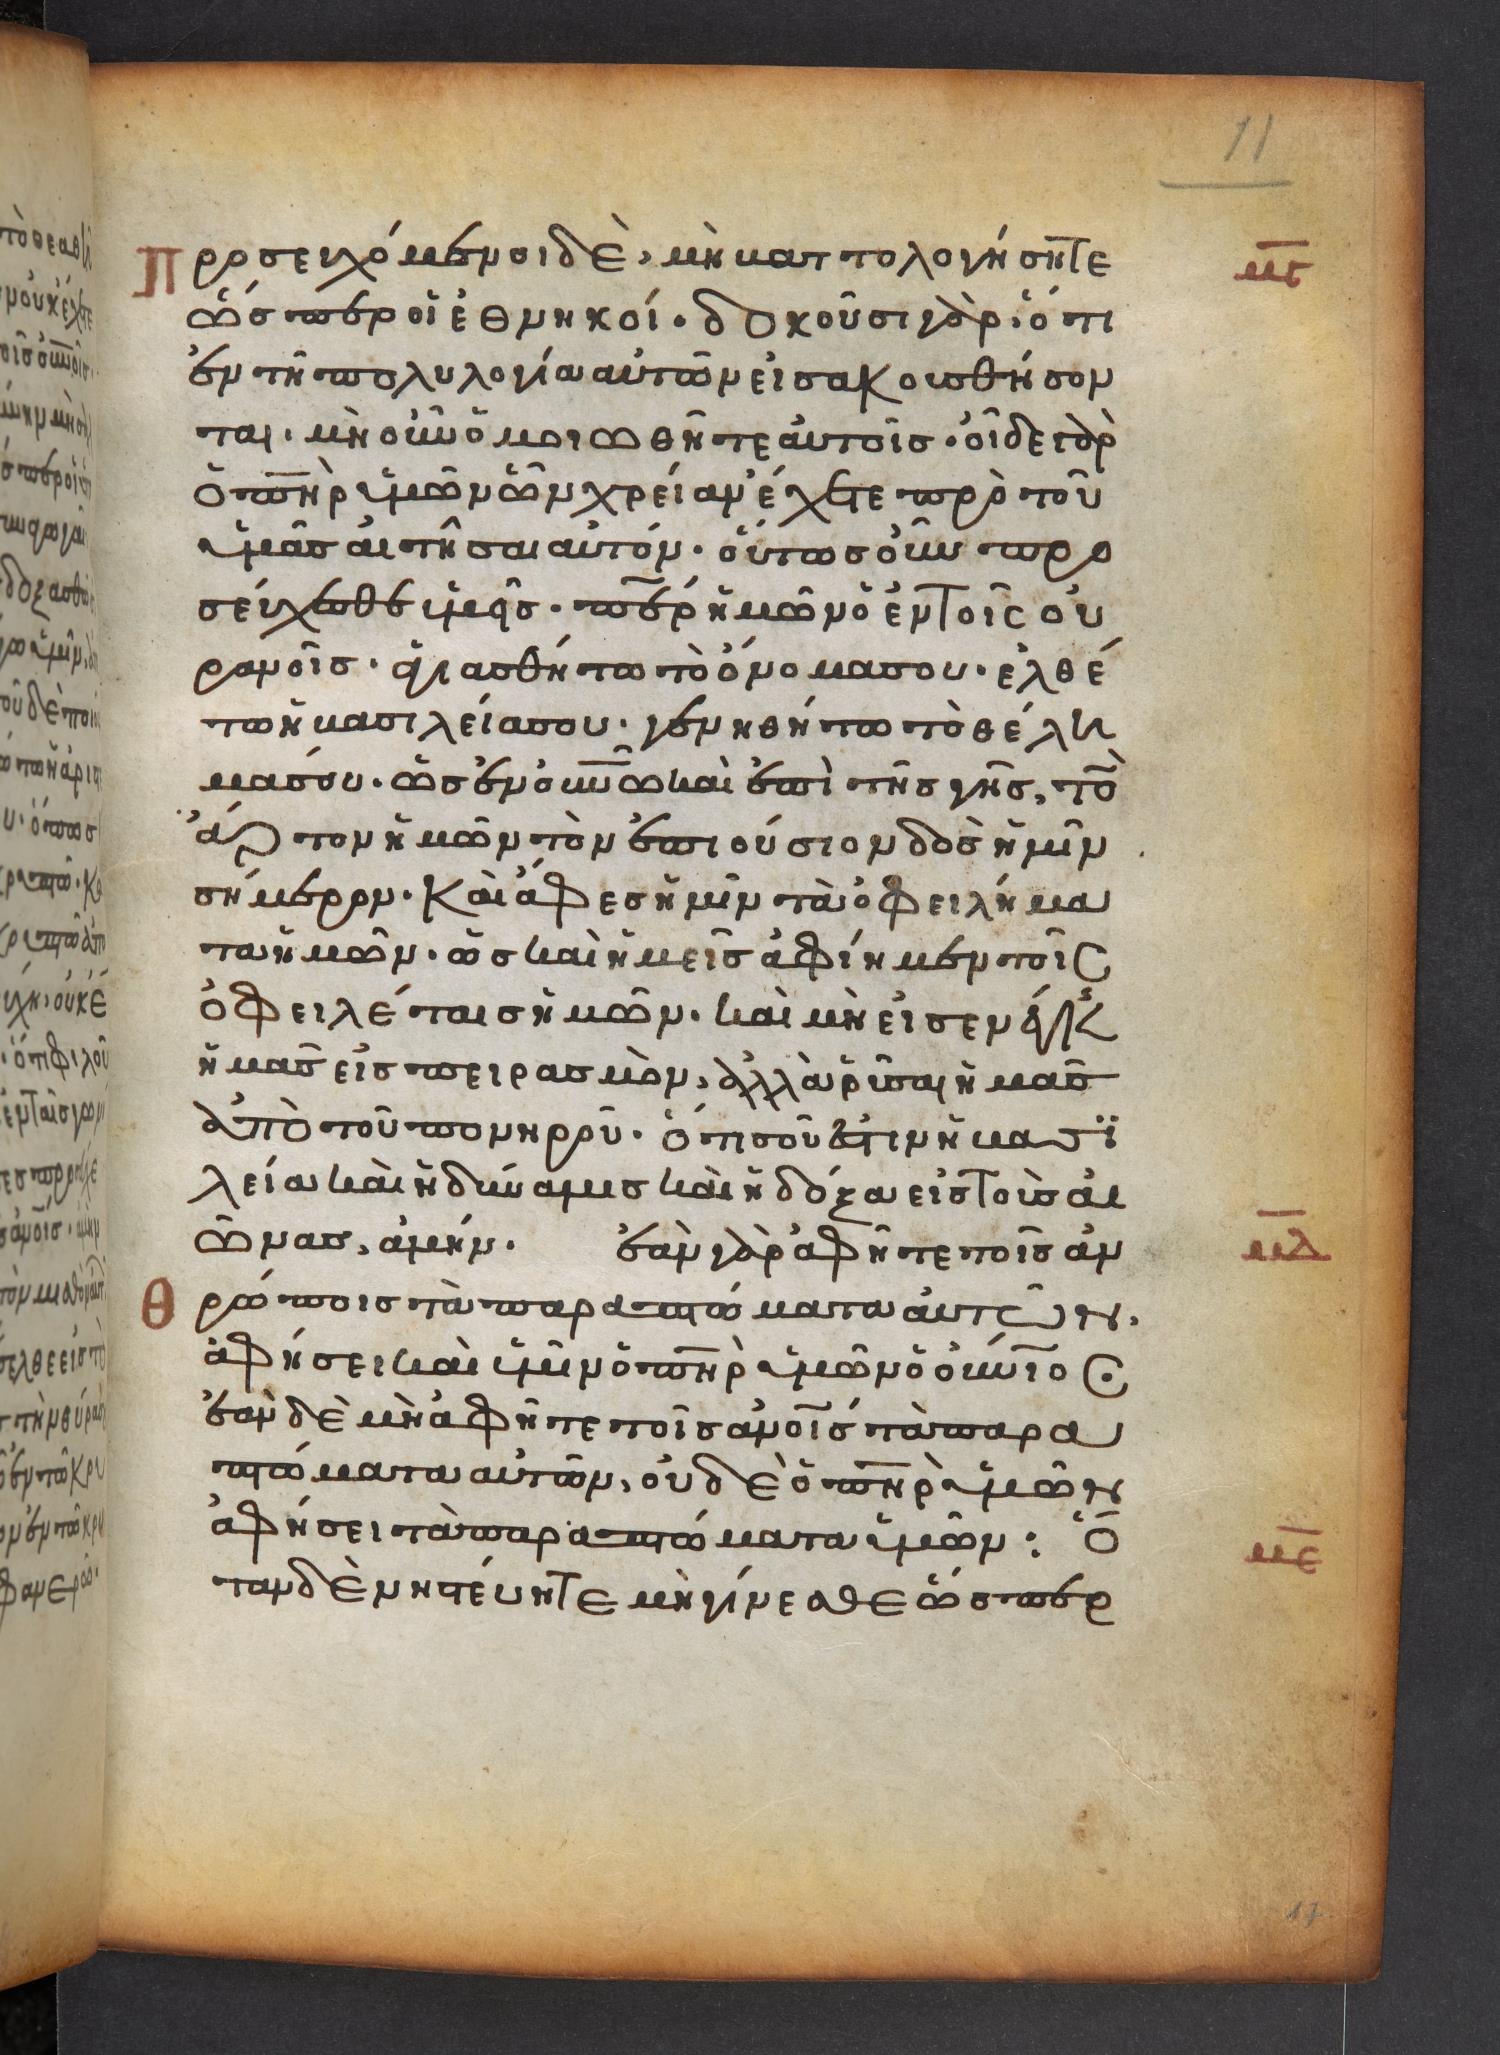 11
Προσευχόμενοι δὲ, μὴ βαττολογήσητε μ̅ς̅
ὥσπερ οἱ ἐθνηκοί· δοκοῦσι γὰρ· ὅτι
ἐν τῆ πολυλογία αὐτῶν εἰσακουσθήσον
ται· μὴ οὖν ὁμοιωθῆτε αὐτοῖς· οἶδε γὰρ
ὁ π̅η̅ρ ὑμῶν ὧν χρείαν ἔχετε πρὸ τοῦ
ὑμᾶς αἰτῆσαι αὐτόν· οὕτως οὖν προ
σεύχεσθε ὑμεῖς· π̅ε̅ρ ἡμῶν ὁ ἐν τοῖς οὐ
ρανοῖς· ἁγιασθήτω τὸ ὄνομα σου· ἐλθέ
τω ἡ βασιλεία σου· γενηθήτω τὸ θέλη
μα σου· ὡς ἐν ο̅υ̅ν̅ω̅ καὶ ἐπὶ τῆς γῆς, τὸν
ἄρτον ἡμῶν τὸν ἐπιούσιον δὸς ἡμῖν
σήμερον· Καὶ ἄφες ἡμῖν τὰ ὀφειλήμα
τα ἡμῶν· ὡς καὶ ἡμεῖς ἀφίημεν τοῖς
ὀφειλέταις ἡμῶν· καὶ μὴ εἰσενέγκης
ἡμᾶς εἰς πειρασμὸν, ἀλλὰ ῥῦσαι ἡμᾶς
ἀπὸ τοῦ πονηροῦ· ὅτι σοῦ ἐστιν ἡ βασϊ
λεία καὶ ἡ δύναμις καὶ ἡ δόξα εἰς τοὺς αἰ
ῶνας, ἀμήν· ἐὰν γὰρ ἀφῆτε τοῖς ἀν μ̅δ̅
Θρώποις τὰ παραπτώματα αὐτῶν·
ἀφήσει καὶ ὑμῖν ὁ π̅η̅ρ ὑμῶν ὁ ο̅υ̅ν̅ιος·
ἐὰν δὲ μὴ ἀφῆτε τοῖς α̅ν̅οις τὰ παρα
πτώματα αὐτῶν, οὐδὲ ὁ π̅η̅ρ ὑμῶν
ἀφήσει τὰ παραπτώματα ὑμῶν: Ὅ μ̅ε̅
ταν δὲ νηστεύητε μὴ γίνεσθε ὥσπερ
17